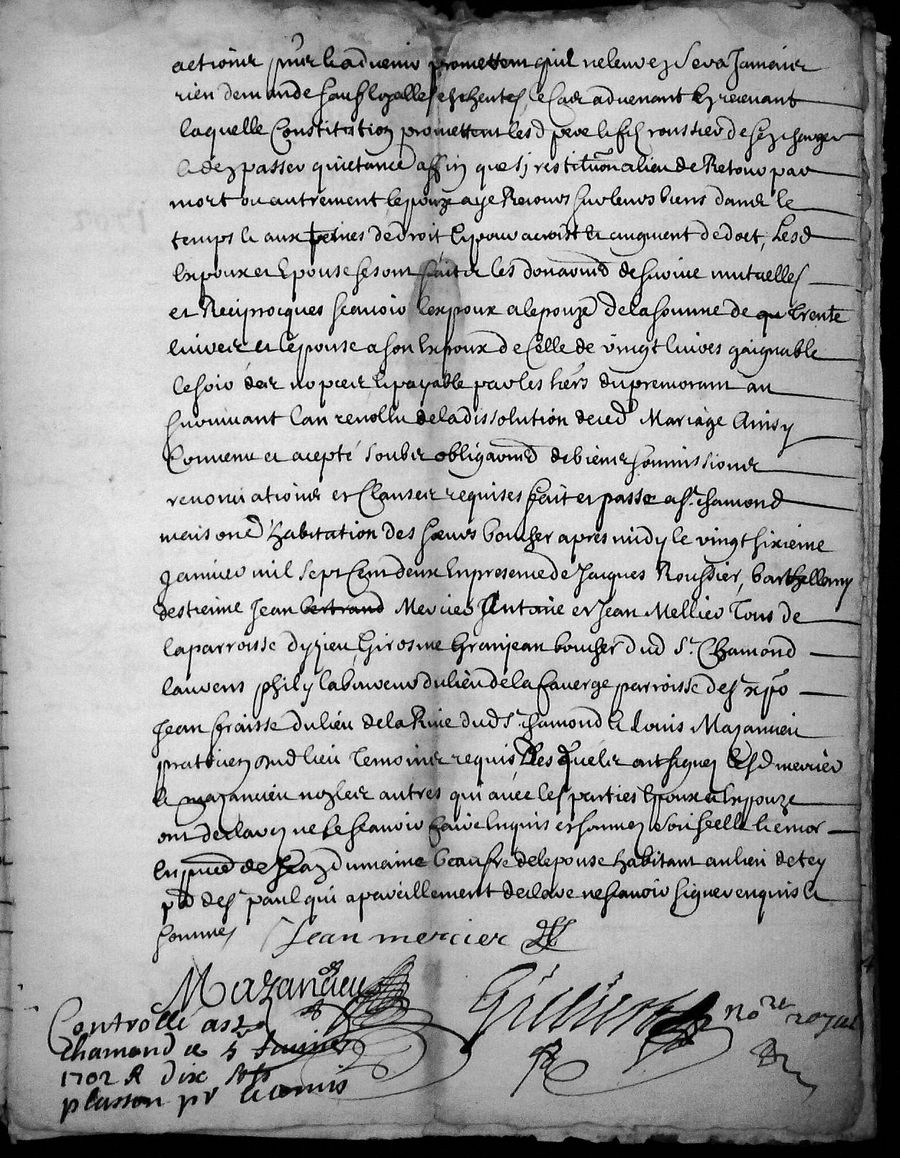 actions pour l'advenir promettent quil ne leur en sera Jamais
rien demande sauf loyalles escheutes, le cas advenant & recevant
laquelle Constitution promettent lesd pere & fils roussier de sen charger
& den passer quictance affin que si restitution a lieu de Retour par
mort ou autrement lepouze aye Recours sur leurs biens dans le
temps & aux peines de droit & pour acroist & augment de dot, Lesd
Espoux et Epouse se sont faites les donaons de survie mutuelles
et Reciprocques scavoir lespoux a lepouze de la somme de trente
livres et lépouse a son Espoux de celle de vingt livres gaignable
le soir des nopces & payable par les hers du premourant au
survivant lan revollu de la dissolution de ced Mariage Ainsy
Convenu et acepté soubz obligaons de biens soumissions
renonciations et Clauses requises fait et passé a st chamond
maison d'habitation des sœurs boucher apres midy le vingt sixieme
Janvier mil sept Cent deux En presence de Jacques Roussier, barthellemy
destienne Jean bertrand Mercier Antoine et Jean Mellier Tous de
la parroisse dyzieu Girosme Granjean boucher dud St Chamond
laurens phily laboureur du lieu de la faverge parroisse de st xpo
Jean fraisse du lieu de la Rive dud st chamond & Louis Mazancieu
praticien aud lieu Temoins requis Lesquels ont signez lesd mercier
& mazancieu non les autres qui avec les parties Epoux & Espouze
ont declarez ne le scavoir faire Enquis et sommez Soit scellé &
En presence de Jean dumaine beaufre de lepouse habitant au lieu de
psse de st paul qui a pareillement declare ne scavoir signer enquis &
sommé Jean mercier
Mazancieu
nore royal
Controllé a st
Chamond le 5
1702 R dix sols
plasson pr le comis